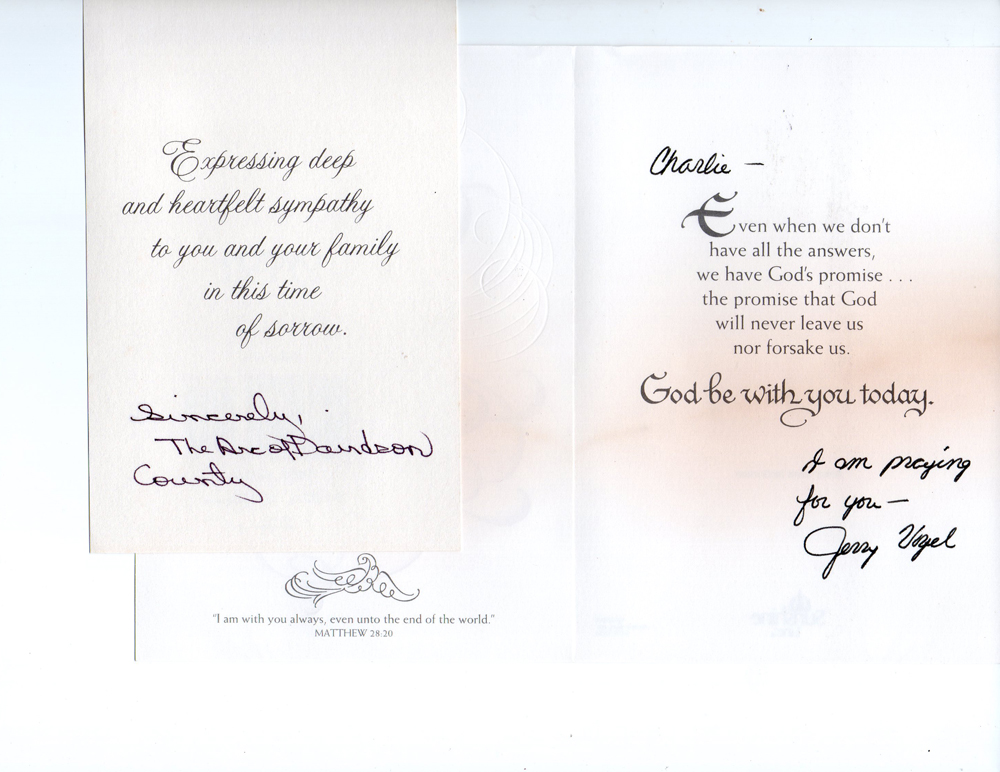 Expressing deep
and heartfelt sympathy
to you and your family
in this time
of sorrow.
Sincerely,
The Arc of Davidson
County
"I am with you always, even unto the end of the world."
MATTHEW 28:20
Charlie —
Even when we don't
have all the answers,
we have God's promise . . .
the promise that God
will never leave us
nor forsake us.
God be with you today.
I am praying
for you —
Jerry Vogel